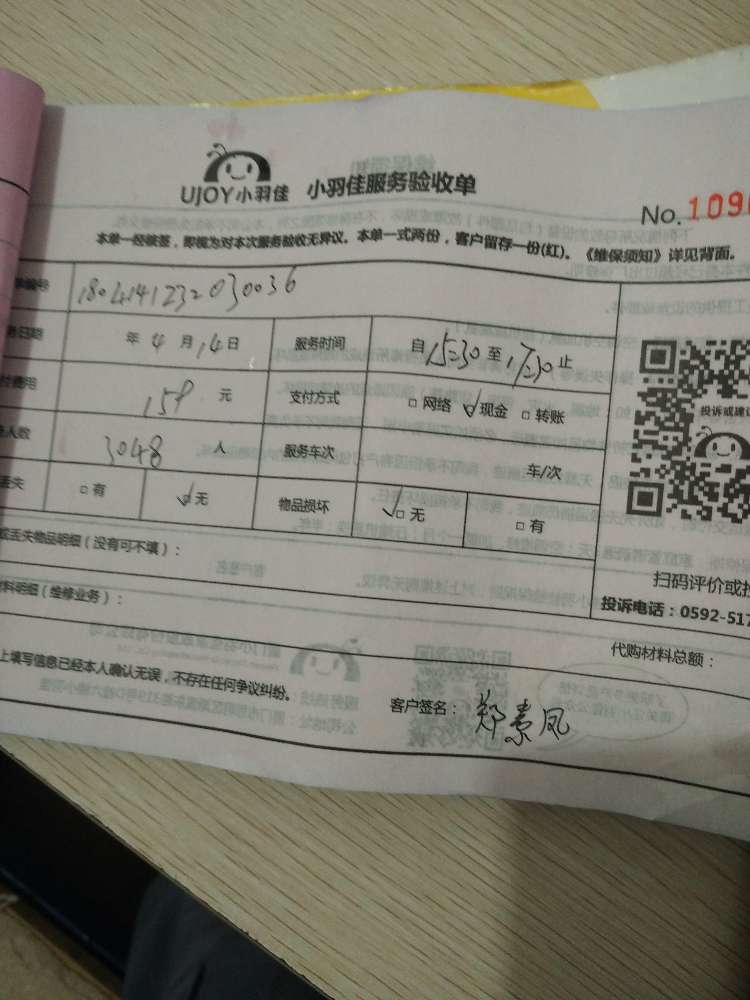 UJOY小羽佳 小羽佳服务验收单
No. 109
本单一经被签，即视为对本次服务验收无异议。本单一式两份，客户留存一份(红)。《维保须知》详见背面。
编号 1804141232030036
日期 年 4 月 14 日 服务时间 自 15:30 至 17:30 止
费用 159 元 支付方式 □ 网络 ☑ 现金 □ 转账
人数 3048 人 服务车次 车/次
丢失 □ 有 ☑ 无 物品损坏 ☑ 无 □ 有
丢失物品明细（没有可不填）：
料明细（维修业务）：
代购材料总额：
上填写信息已经本人确认无误，不存在任何争议纠纷。
客户签名： 郑素凤
投诉或建
扫码评价或投
投诉电话：0592-517